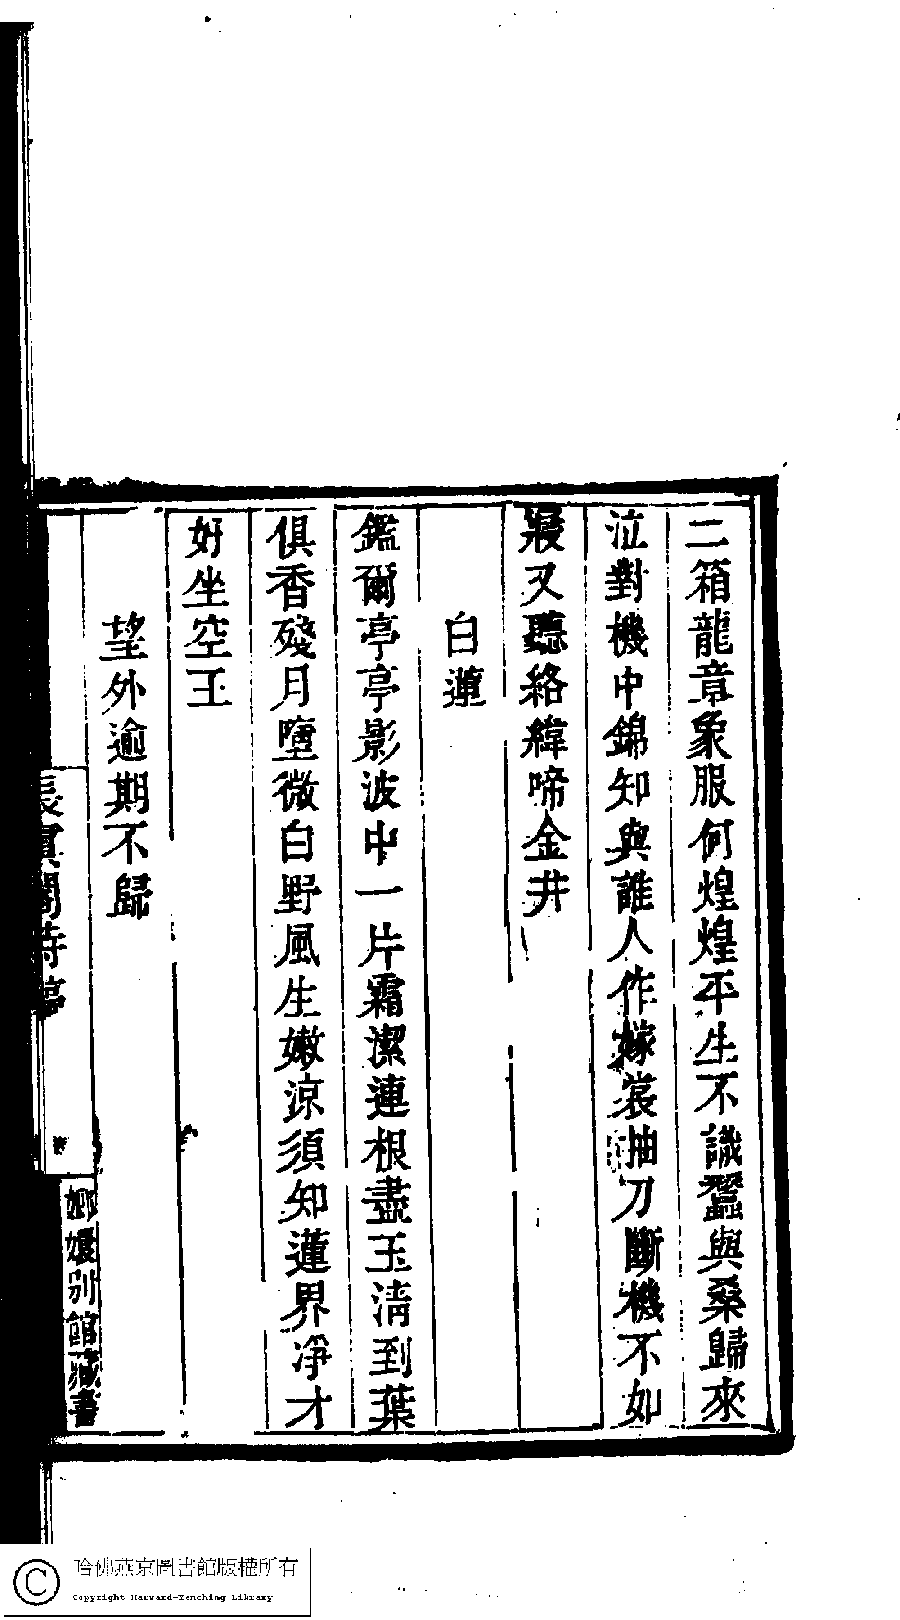 二箱龍章象服何煌煌平生不識蠶與桑歸來
泣對機中錦知與誰人作嫁裳抽刀斷機不如
寢又聽絡緯啼金井
白蓮
鑑爾亭亭影波中一片霜潔連根盡玉清到葉
俱香殘月墮微白野風生嫩涼須知蓮界凈才
好坐空王
望外逾期不歸
長真閣詩稿
嫏嬛別館藏書
哈佛燕京圖書館版權所有
Copyright Harvard-Yenching Library